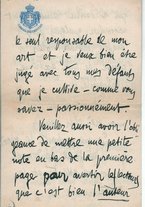 le seul responsable de mon
art et je veux bien être
jugé avec tous mes défauts
que je cultive - comme vous
savez - passionnément
Veuillez aussi avoir l'obli
geance de mettre une petite
note en bas de la première
page pour avertir les lecteurs
que c'est bien l'auteur